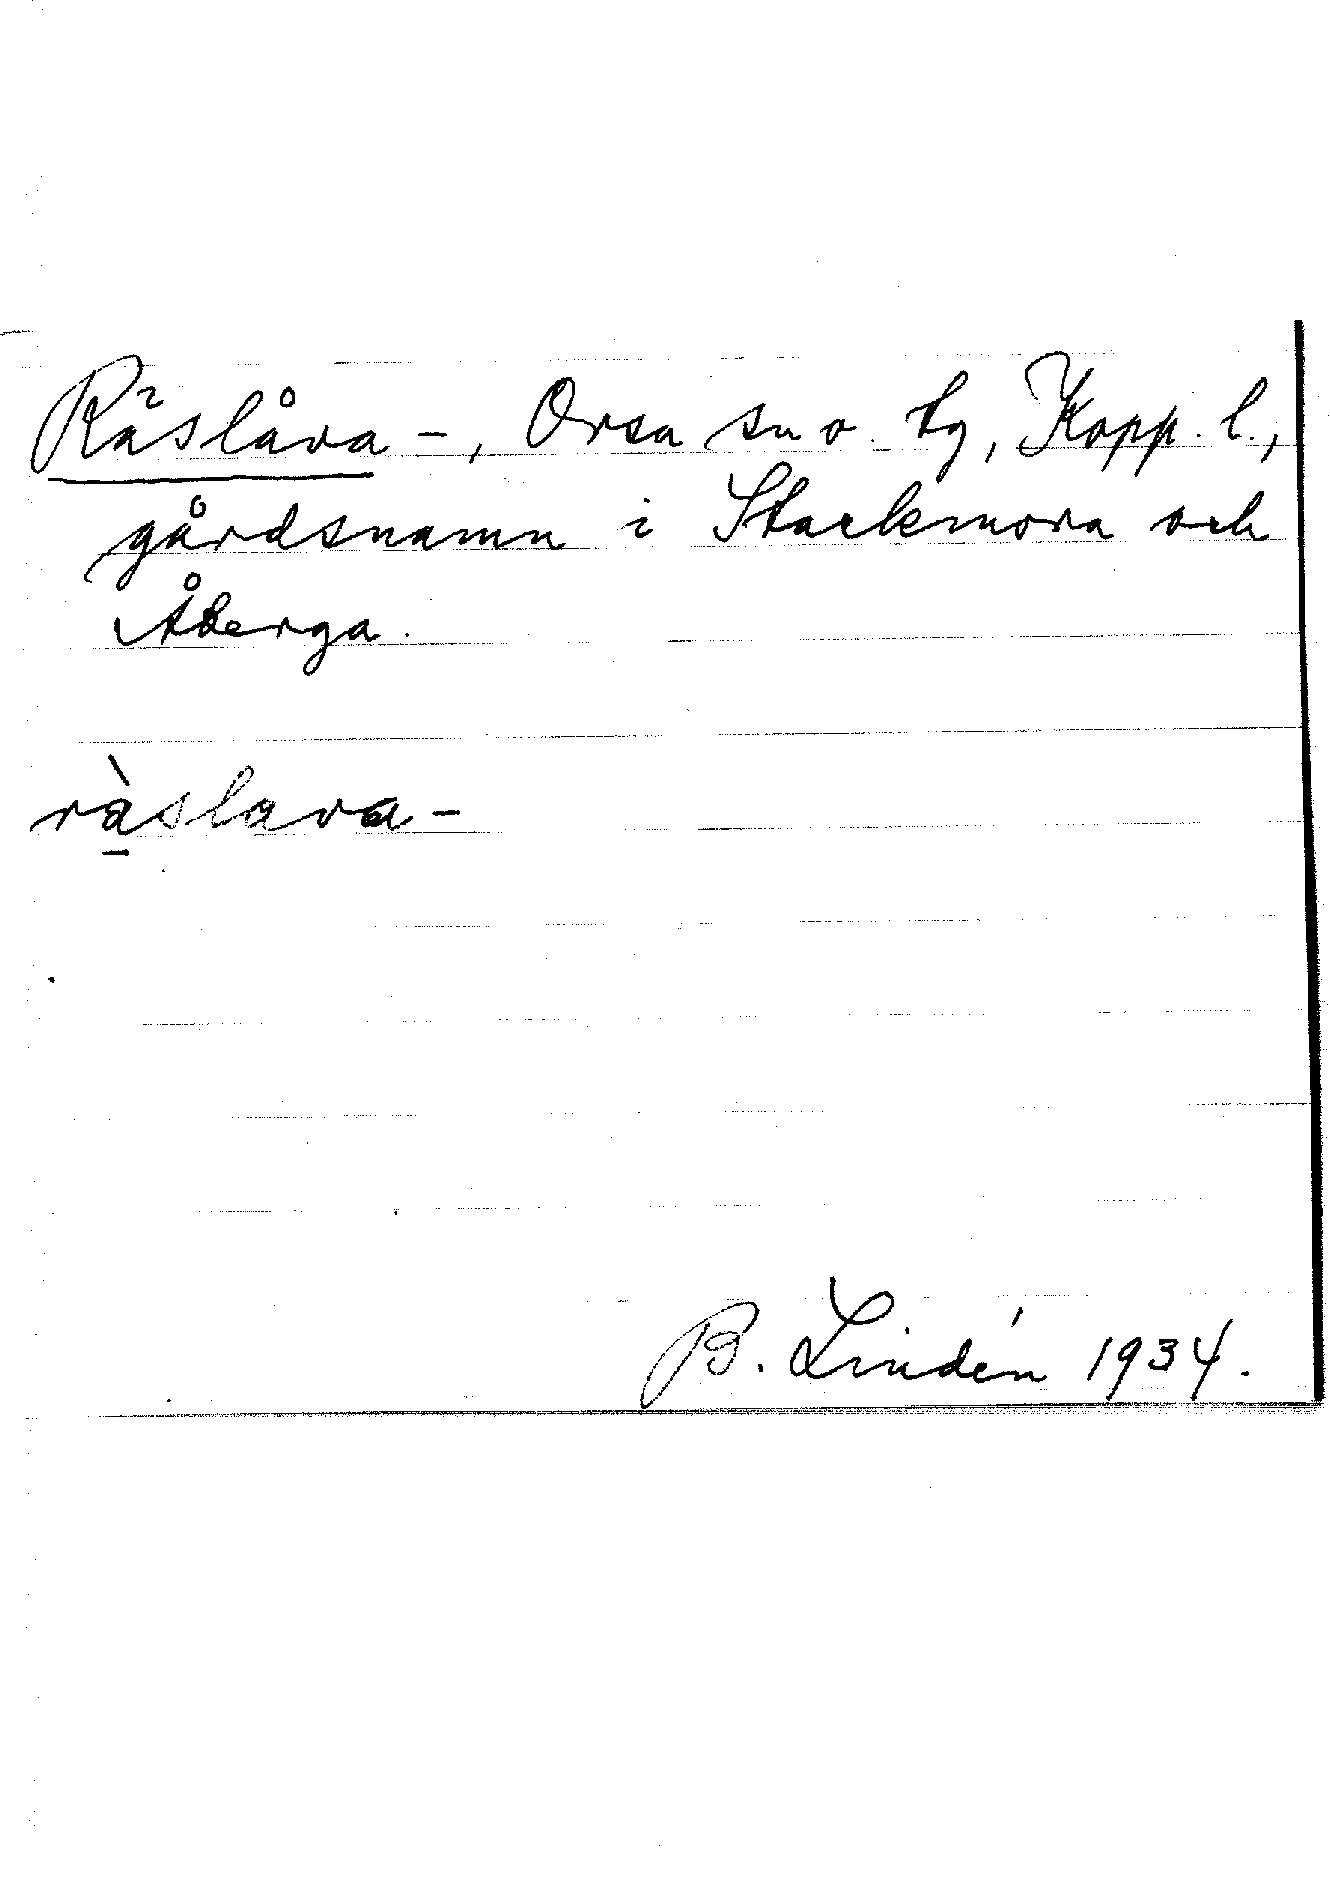 Räslåva -, Orsa sn o. tg, Kopp. l.,
gårdsnamn i Stackmora och
Åberga.
ràslava -
B. Lindén 1934.